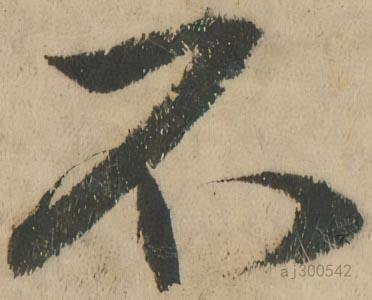 不
aj300542